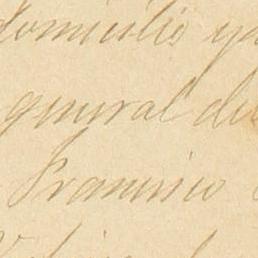 domicilio y
general de
Francisco